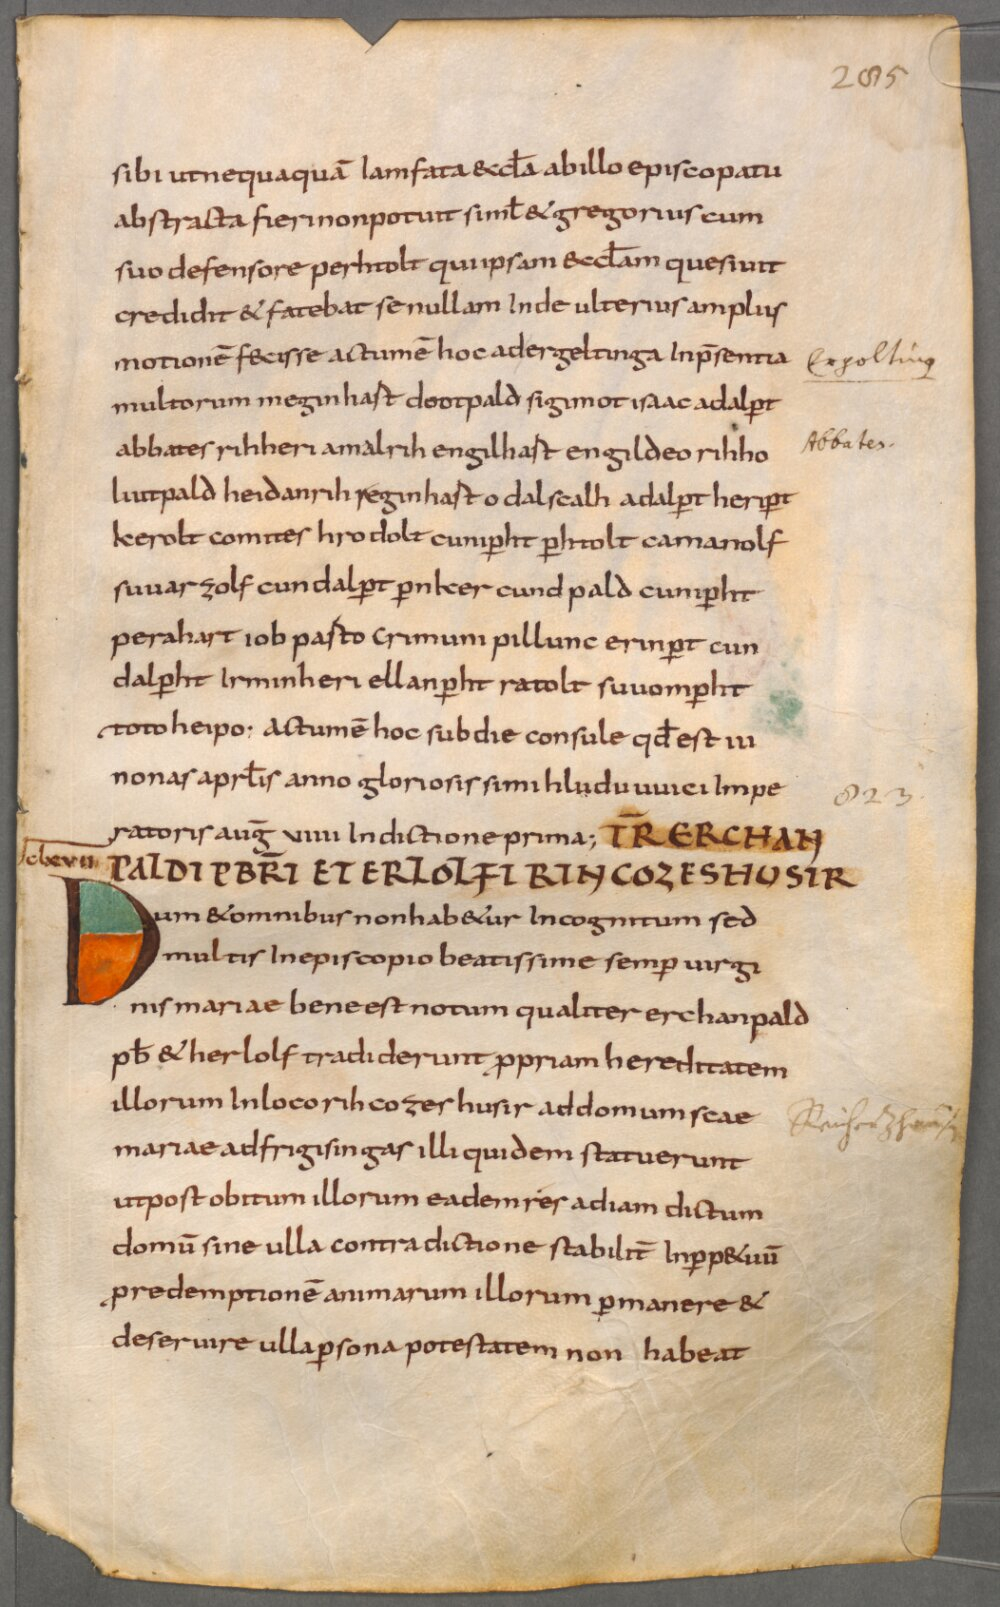 285
sibi ut nequaquā Iam fata & ecła ab illo episcopatu
abstracta fieri non potuit simł & gregorius cum
suo defensore perhtolt qui ipsam & ecłam quesiuit
credidit & fatebat se nullam Inde ulterius amplius
motionē fecisse actum ē hoc ad ergeltinga In p̄sentia
Ergolting
multorum meginhast dootpald sigimot isaac adalp̄t
abbates rihheri amalrih engilhast engildeo rihho
Abbates.
liutpald heidanrih reginhast odalscalh adalp̄t herip̄t
kerolt comites hrodolt cunip̄ht p̄htolt camanolf
suuarzolf cundalp̄t p̄nker cundpald cunip̄ht
perahart iob pasto crimuni pillunc erinp̄t cun
dalp̄ht Irminheri ellanp̄ht ratolt suuomp̄ht
toto heipo; actum ē hoc sub die consule qđ est iii
nonas aprłis anno gloriosissimi hluduuuici Impe
823.
ratoris aug̅ viiii Indictione prima; TR̄ ERCHAN
PALDI PBR̄I ET ERLOLFI RIHCOZESHUSIR
Dum & omnibus non hab&ur Incognitum sed
multis In episcopio beatissime semp̄ uirgi
nis mariae bene est notum qualiter erchanpald
pƀ & herlolf tradiderunt ꝓpriam hereditatem
illorum In loco rihcozeshusir ad domum scae
mariae ad frigisingas illi quidem statuerunt
ut post obitum illorum eadem res ad iam dictum
domū sine ulla contradictione stabilit̄ In ꝑp&uū
ꝓ redemptionē animarum illorum ꝑmanere &
deseruire ulla ꝑsona potestatem non habeat